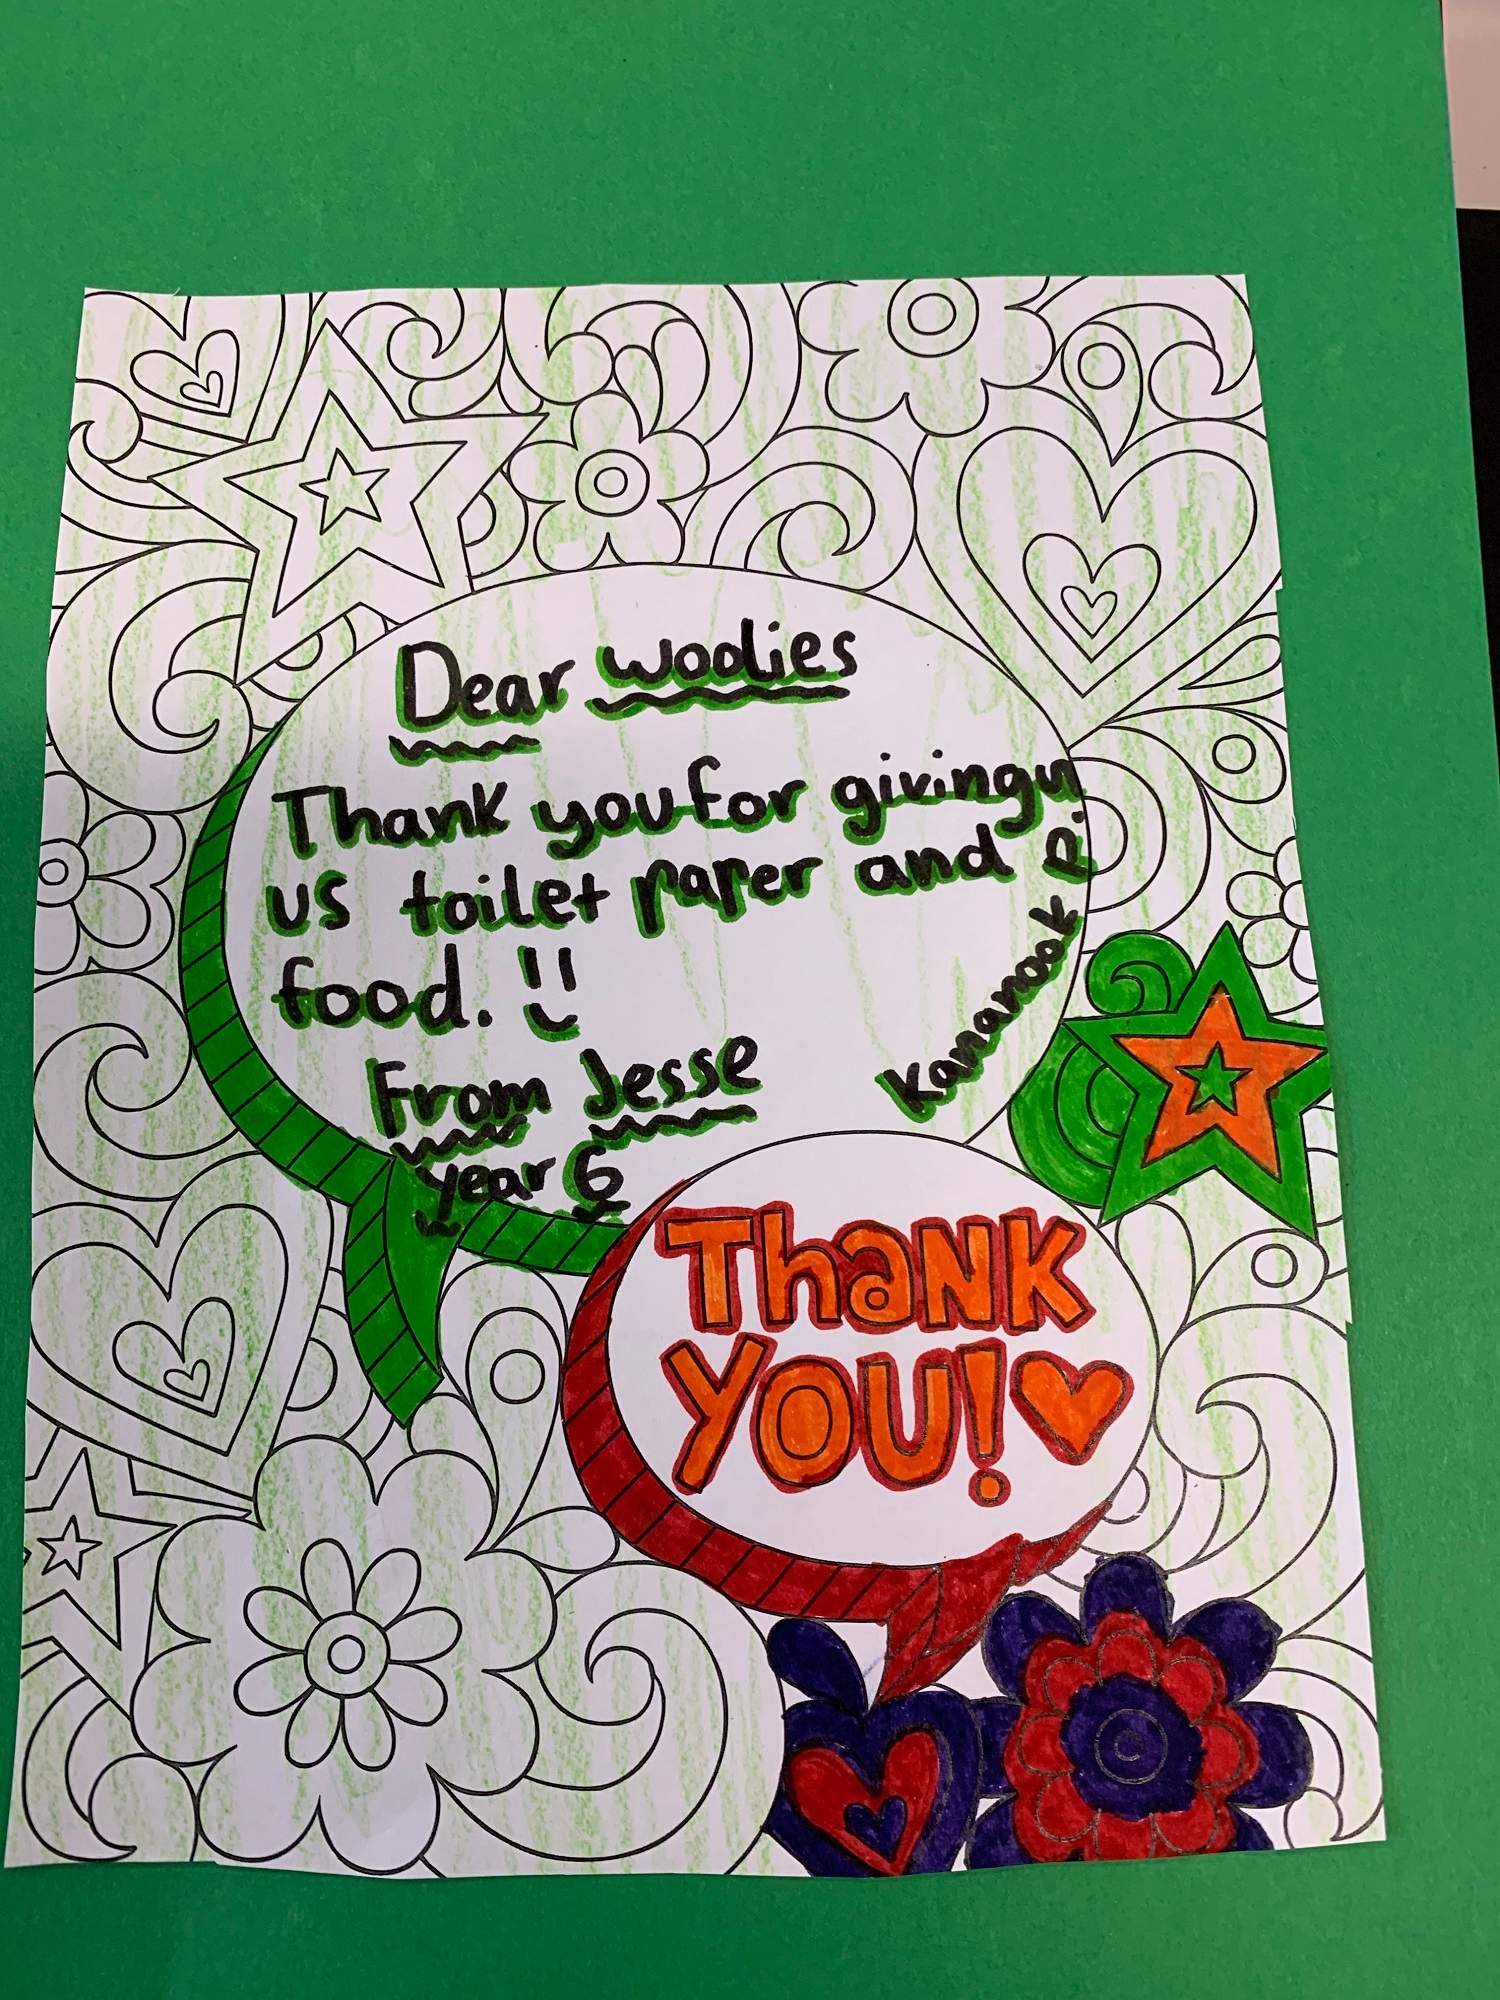 Dear woolies
Thank you for givingu
us toilet paper and
food.
From Jesse
year 6
Kananook P.
THANK
YOU!